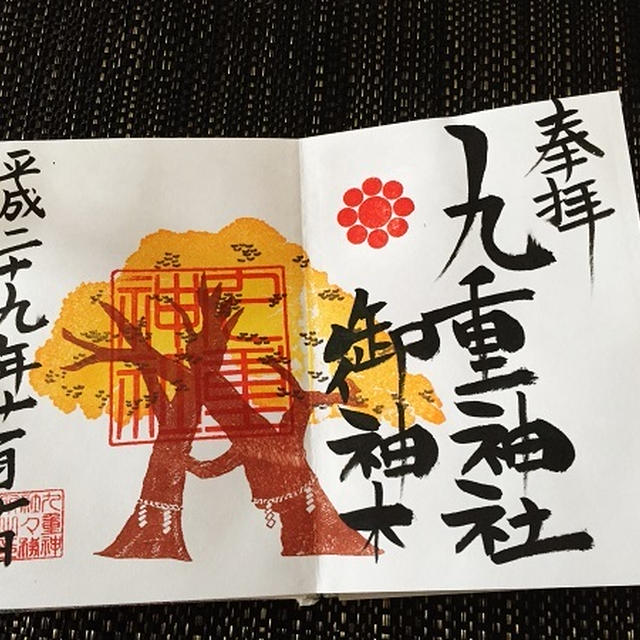 奉拝
九重神社
御神木
平成二十九年十一月十一日
九重神社